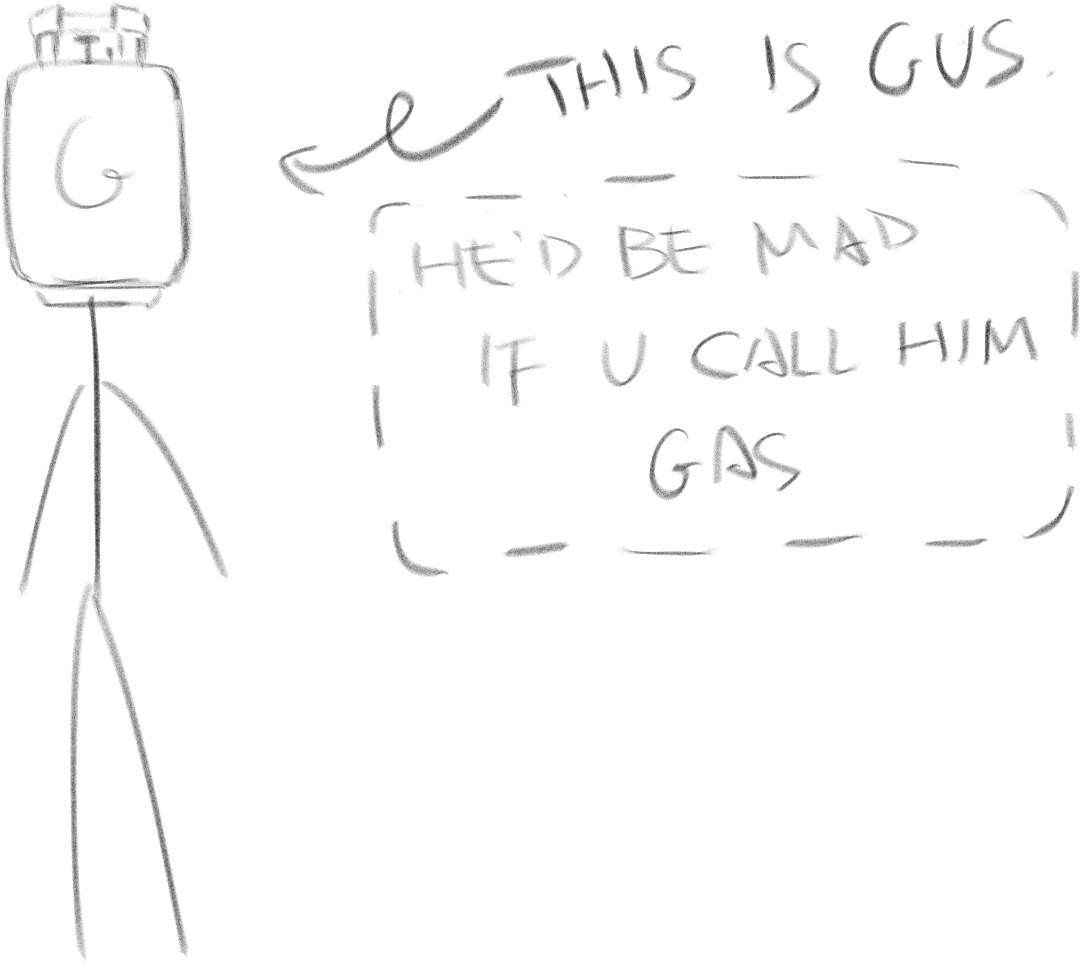 THIS IS GUS.
G
HE'D BE MAD
IF U CALL HIM
GAS